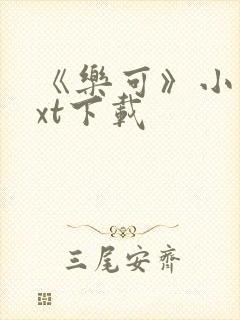 《樂可》小
xt下載
三尾安齊